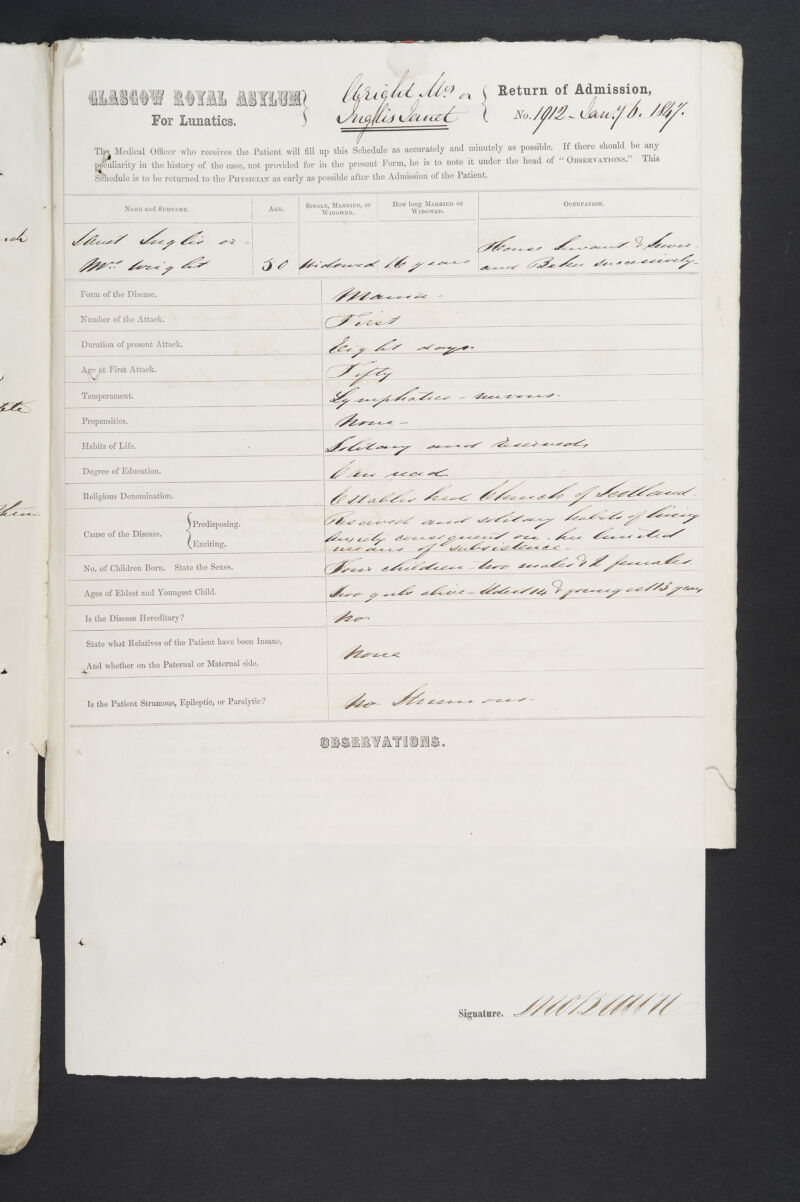 GLASGOW ROYAL ASYLUM
For Lunatics.
Wright Mrs or
Inglis Janet
Return of Admission,
No. 1912 - Jany 6. 1847.
The Medical Officer who receives the Patient will fill up this Schedule as accurately and minutely as possible. If there should be any
peculiarity in the history of the case, not provided for in the present Form, he is to note it under the head of "OBSERVATIONS." This
Schedule is to be returned to the PHYSICIAN as early as possible after the Admission of the Patient.
NAME and SURNAME. AGE. SINGLE, MARRIED, or WIDOWED. How long MARRIED or WIDOWED. OCCUPATION.
Janet Inglis or
Mrs. Wright 50 Widowed 16 years House Servant & Sewer
and Baker successively-
Form of the Disease. Mania-
Number of the Attack. First
Duration of present Attack. Eight days.
Age at First Attack. Fifty
Temperament. Lymphatico - nervous.
Propensities. None-
Habits of Life. Solitary and reserved.
Degree of Education. Can read
Religious Denomination. Established Church of Scotland-
Cause of the Disease. Predisposing. Reserved and solitary habits of living
Exciting. Anxiety consequent on her limited
means of subsistence-
No. of Children Born. State the Sexes. Four children - two males & 2 females
Ages of Eldest and Youngest Child. Two girls alive - Eldest 14 & youngest 13 years
Is the Disease Hereditary? No
State what Relatives of the Patient have been Insane,
And whether on the Paternal or Maternal side. None
Is the Patient Strumous, Epileptic, or Paralytic? No. Strumous.
OBSERVATIONS.
Signature.